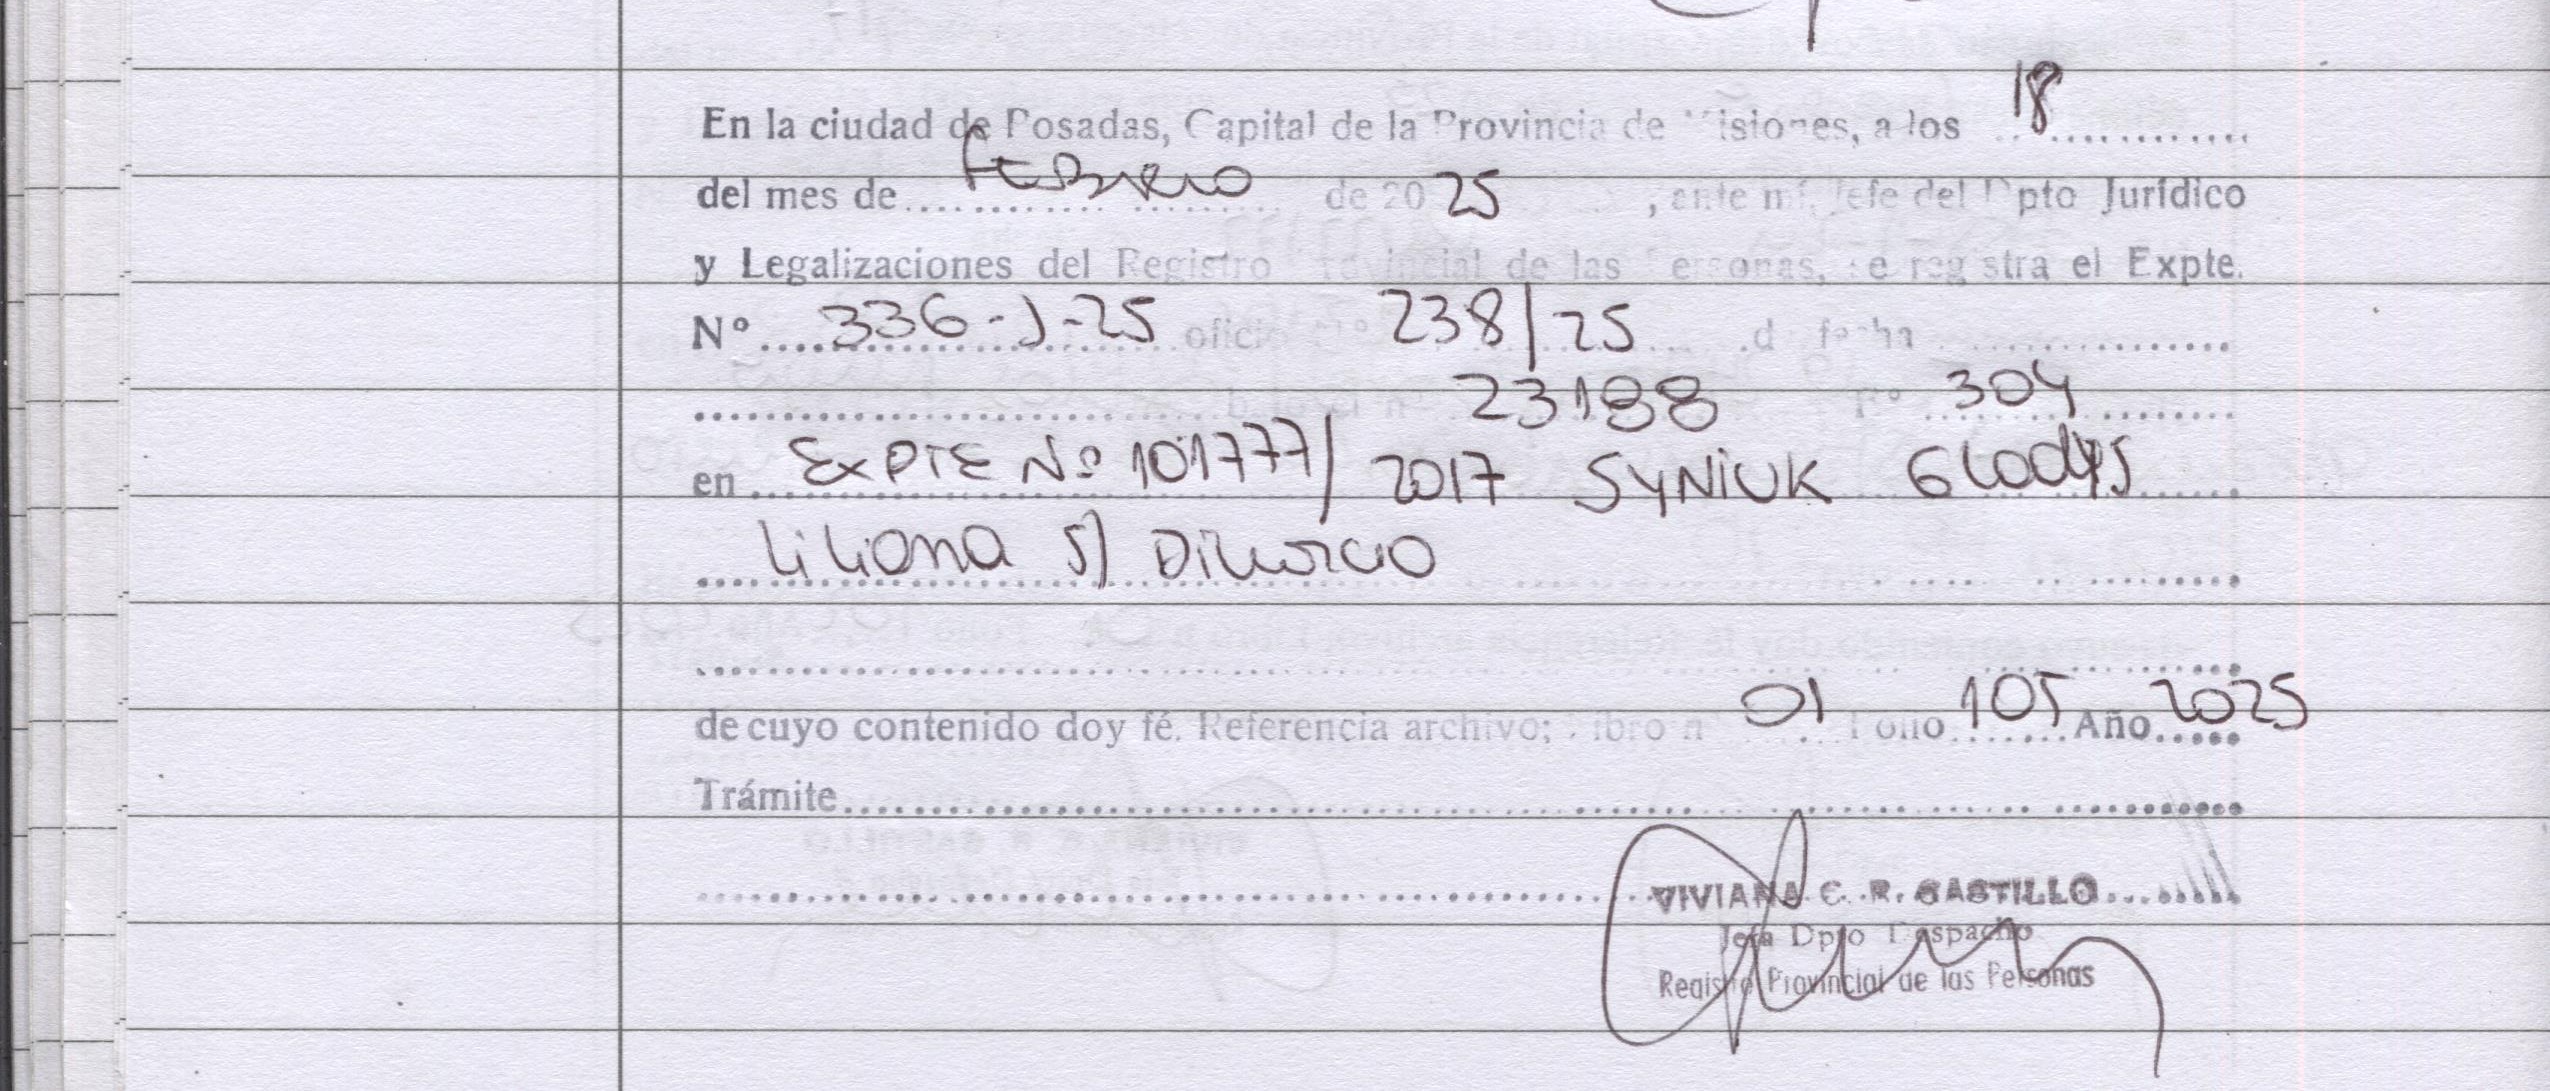 En la ciudad de Posadas, Capital de la Provincia de Misiones, a los 18
del mes de febrero de 2025, ante mí, Jefe del Dpto Jurídico
y Legalizaciones del Registro Provincial de las Personas, se registra el Expte.
Nº 336-J-25 oficio Nº 238/25 de fecha
23188 Fº 304
en EXPTE Nº 101777/2017 SYNIUK Gladys
Liliana S/ Divorcio
de cuyo contenido doy fé. Referencia archivo; Libro nº 01 Folio 105 Año 2025
Trámite
VIVIANA E. R. CASTILLO
Jefa Dpto Despacho
Registro Provincial de las Personas